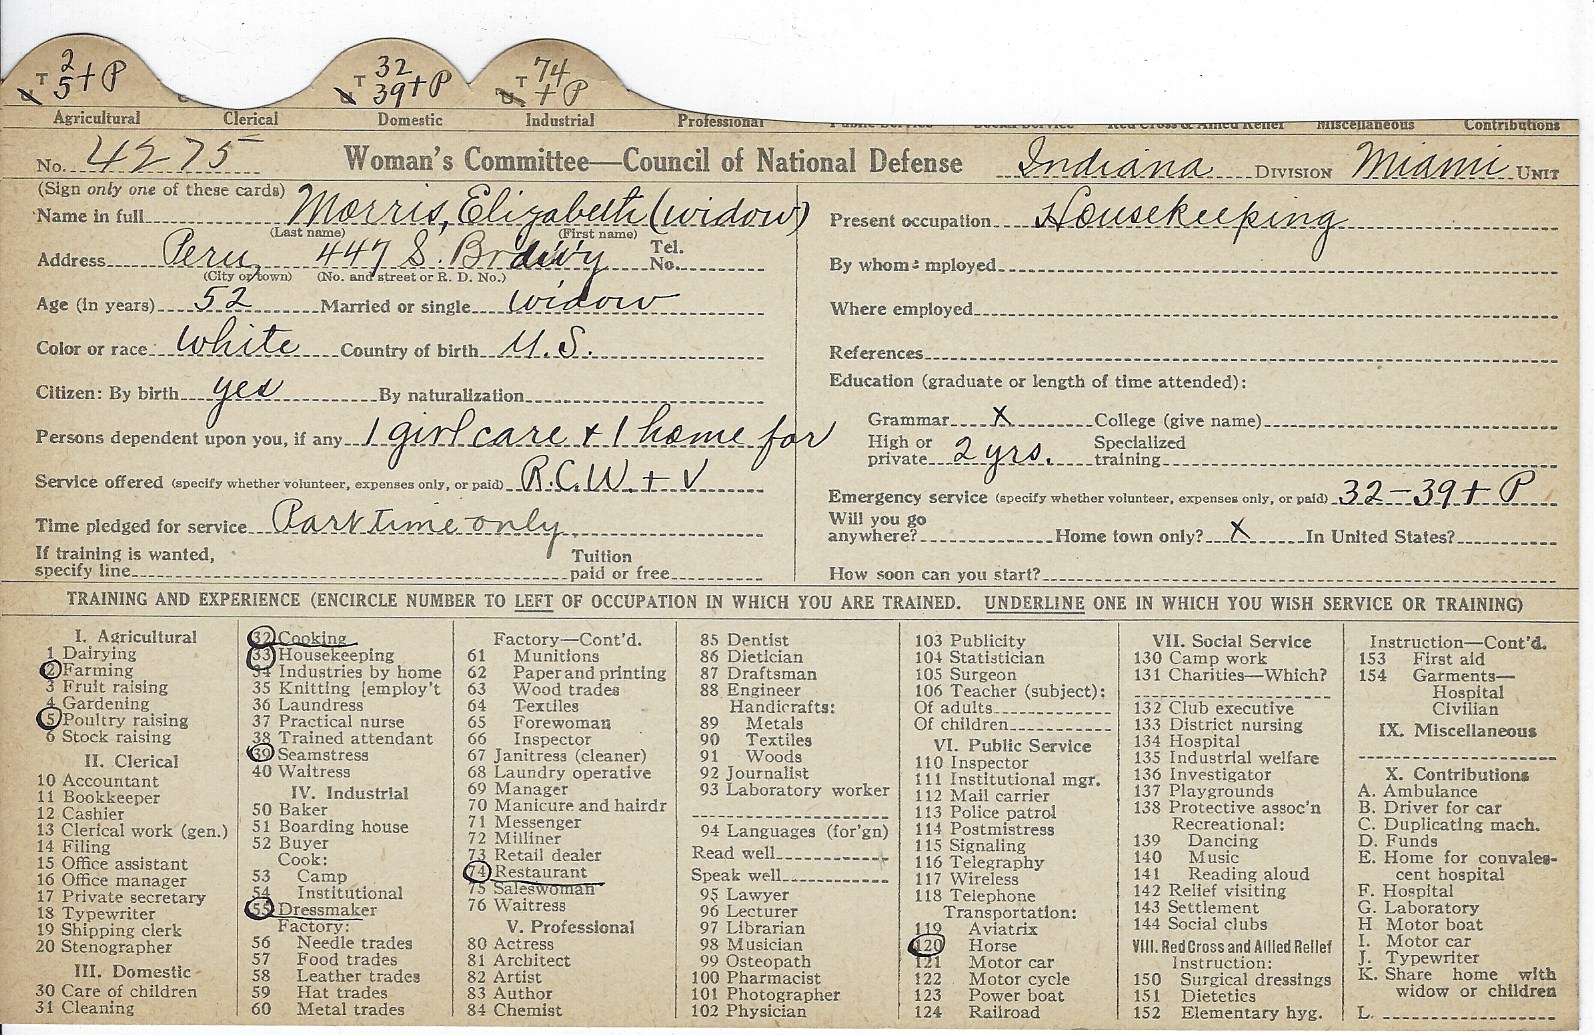 2 32 74
T 5+P T 39+P T + P
Agricultural Clerical Domestic Industrial Professional Miscellaneous Contributions
No. 4275 Woman's Committee—Council of National Defense Indiana DIVISION Miami UNIT
(Sign only one of these cards)
Name in full Morris, Elizabeth (widow)
(Last name) (First name)
Address Peru, 447 S. Brdwy Tel. No.
(City or town) (No. and street or R. D. No.)
Age (in years) 52 Married or single widow
Color or race White Country of birth U.S.
Citizen: By birth yes By naturalization
Persons dependent upon you, if any 1 girl care & 1 home for
Service offered (specify whether volunteer, expenses only, or paid) R.C.W. + V
Time pledged for service Part time only.
If training is wanted, Tuition
specify line paid or free
Present occupation Housekeeping
By whom mployed
Where employed
References
Education (graduate or length of time attended):
Grammar X College (give name)
High or 2 yrs. Specialized
private training
Emergency service (specify whether volunteer, expenses only, or paid) 32-39+ P
Will you go
anywhere? Home town only? X In United States?
How soon can you start?
TRAINING AND EXPERIENCE (ENCIRCLE NUMBER TO LEFT OF OCCUPATION IN WHICH YOU ARE TRAINED. UNDERLINE ONE IN WHICH YOU WISH SERVICE OR TRAINING)
I. Agricultural
1 Dairying
2 Farming
3 Fruit raising
4 Gardening
5 Poultry raising
6 Stock raising
II. Clerical
10 Accountant
11 Bookkeeper
12 Cashier
13 Clerical work (gen.)
14 Filing
15 Office assistant
16 Office manager
17 Private secretary
18 Typewriter
19 Shipping clerk
20 Stenographer
III. Domestic
30 Care of children
31 Cleaning
32 Cooking
33 Housekeeping
34 Industries by home
35 Knitting [employ't
36 Laundress
37 Practical nurse
38 Trained attendant
39 Seamstress
40 Waitress
IV. Industrial
50 Baker
51 Boarding house
52 Buyer
Cook:
53 Camp
54 Institutional
55 Dressmaker
Factory:
56 Needle trades
57 Food trades
58 Leather trades
59 Hat trades
60 Metal trades
Factory—Cont'd.
61 Munitions
62 Paper and printing
63 Wood trades
64 Textiles
65 Forewoman
66 Inspector
67 Janitress (cleaner)
68 Laundry operative
69 Manager
70 Manicure and hairdr
71 Messenger
72 Milliner
73 Retail dealer
74 Restaurant
75 Saleswoman
76 Waitress
V. Professional
80 Actress
81 Architect
82 Artist
83 Author
84 Chemist
85 Dentist
86 Dietician
87 Draftsman
88 Engineer
Handicrafts:
89 Metals
90 Textiles
91 Woods
92 Journalist
93 Laboratory worker
94 Languages (for'gn)
Read well
Speak well
95 Lawyer
96 Lecturer
97 Librarian
98 Musician
99 Osteopath
100 Pharmacist
101 Photographer
102 Physician
103 Publicity
104 Statistician
105 Surgeon
106 Teacher (subject):
Of adults
Of children
VI. Public Service
110 Inspector
111 Institutional mgr.
112 Mail carrier
113 Police patrol
114 Postmistress
115 Signaling
116 Telegraphy
117 Wireless
118 Telephone
Transportation:
119 Aviatrix
120 Horse
121 Motor car
122 Motor cycle
123 Power boat
124 Railroad
VII. Social Service
130 Camp work
131 Charities—Which?
132 Club executive
133 District nursing
134 Hospital
135 Industrial welfare
136 Investigator
137 Playgrounds
138 Protective assoc'n
Recreational:
139 Dancing
140 Music
141 Reading aloud
142 Relief visiting
143 Settlement
144 Social clubs
VIII. Red Cross and Allied Relief
Instruction:
150 Surgical dressings
151 Dietetics
152 Elementary hyg.
Instruction—Cont'd.
153 First aid
154 Garments—
Hospital
Civilian
IX. Miscellaneous
X. Contributions
A. Ambulance
B. Driver for car
C. Duplicating mach.
D. Funds
E. Home for convales-
cent hospital
F. Hospital
G. Laboratory
H Motor boat
I. Motor car
J. Typewriter
K. Share home with
widow or children
L.